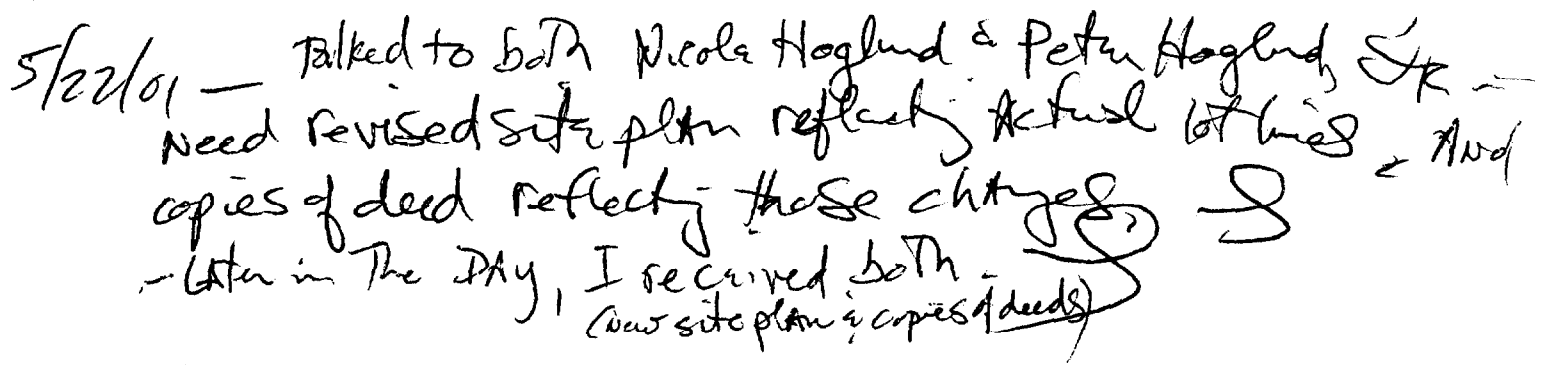 5/22/01 — Talked to both Nicole Hoglund & Peter Hoglund, JR —
Need revised site plan reflecting Actual lot lines, And
copies of deed reflecting those changes,
- Later in The DAy, I received both -
(New site plan & copies of deeds)